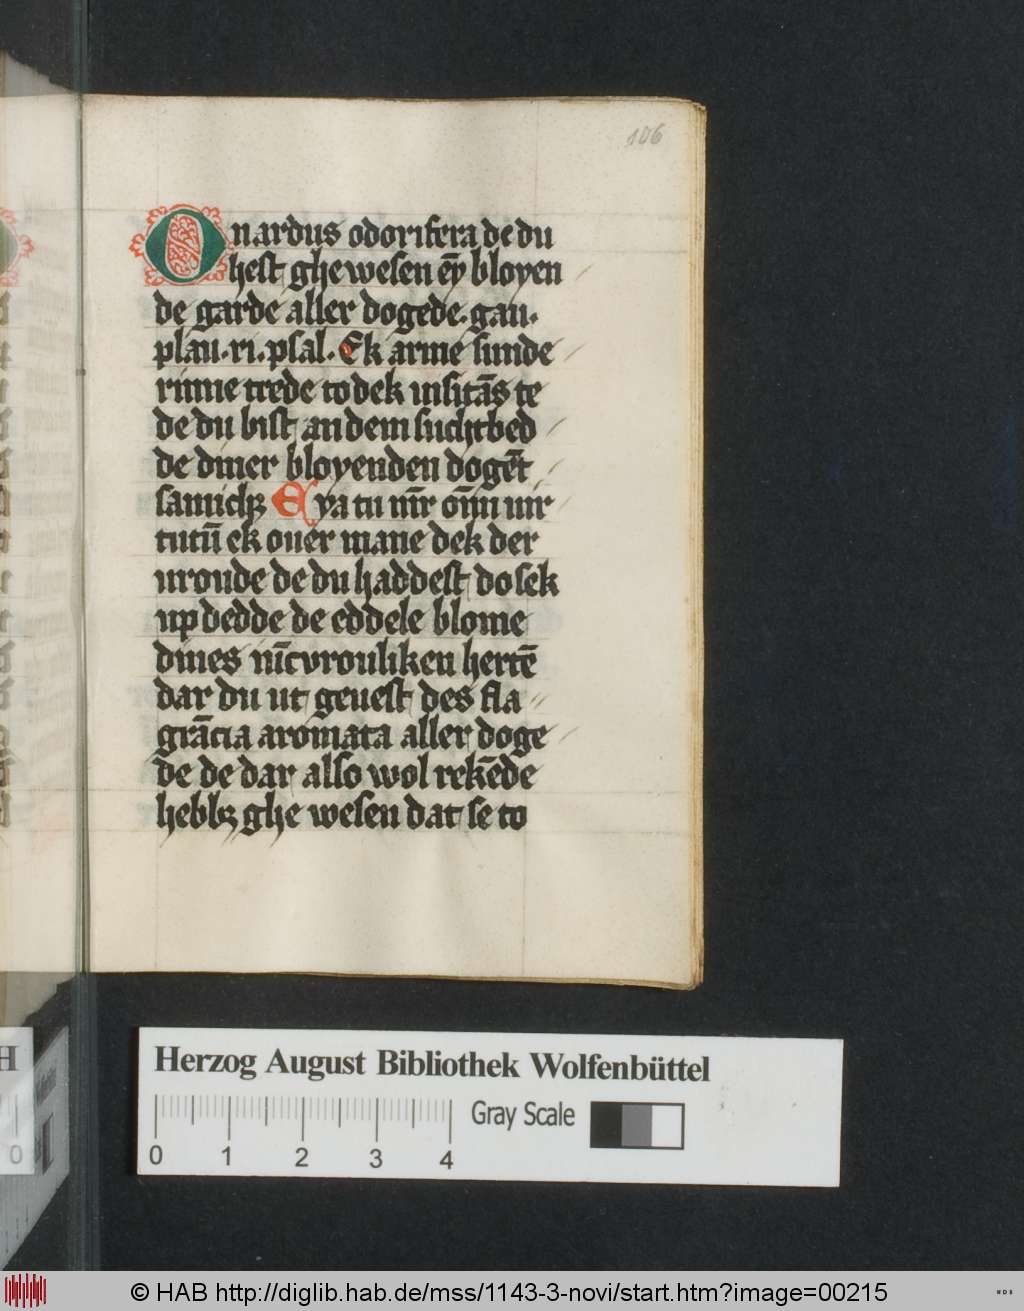 106
O nardus odorifera de du
hest ghewesen eȳ bloyen
de garde aller dogede. gau.
plau. ri. psal. Ek arme sunde
rinne trede to dek in sitās te
de du bist an dem suchtbed
de diner bloyenden dogēt
samichꝫ Eya tu mr̄ oīm uir
tutū ek ouer mane dek der
uroude de du haddest do sek
up dedde de eddele blome
dines nīcvrouliken hertē
dar du ut geuest des fla
grācia aromata aller doge
de de dar also wol rekēde
hebbꝫ ghe wesen dat se to
Herzog August Bibliothek Wolfenbüttel
Gray Scale
0 1 2 3 4
H
0
© HAB http://diglib.hab.de/mss/1143-3-novi/start.htm?image=00215